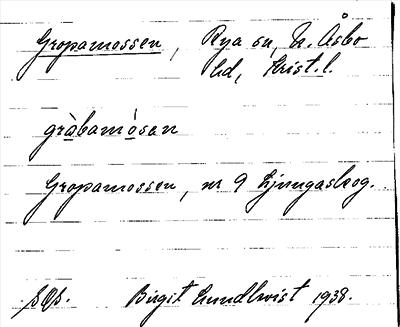 Gropamossen, Rya sn, N. Åsbo
hd, Krist. l.
gròbamòsan
Gropamossen, nr 9 Ljungaskog.
Birgit Lundkvist 1938.